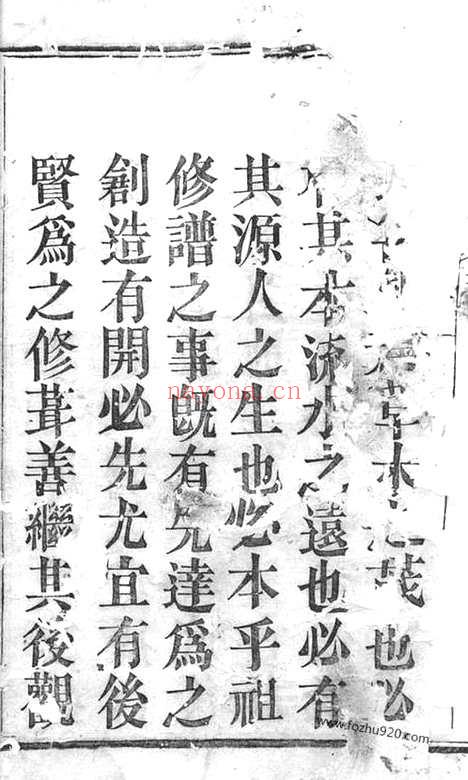 草木之茂也必
有其本流水之遠也必有
其源人之生也必本乎祖
修譜之事旣有先達爲之
創造有開必先尤宜有後
賢爲之修葺善繼其後觀
nayona.cn
www.fozhu920.com